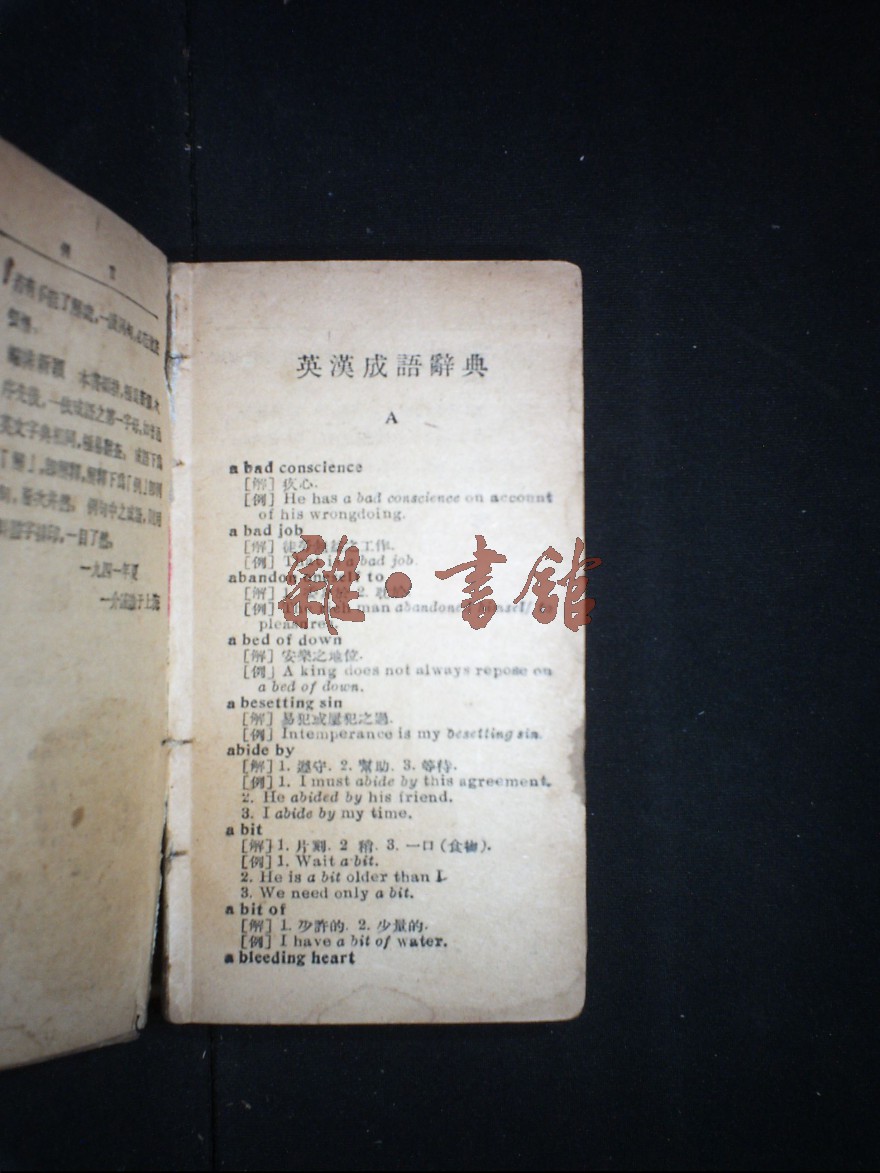 例言
編排新穎
序先後,一依成語之第一字母,
英文字典相同,極易翻查。成語下爲
「解」,即解釋,解釋下爲「例」即例
句,層次井然。例句中之成語,則用
斜體字排印,一目了然。
一九四一年夏
英漢成語辭典
A
a bad conscience
[解] 疚心.
[例] He has a bad conscience on account
of his wrongdoing.
a bad job
[解] 工作.
[例] a bad job.
abandon oneself to
[解]
[例] The rich man abandoned himself to
pleasures.
a bed of down
[解] 安樂之地位.
[例] A king does not always repose on
a bed of down.
a besetting sin
[解] 易犯或屢犯之過.
[例] Intemperance is my besetting sin.
abide by
[解] 1. 遵守. 2. 幫助. 3. 等待.
[例] 1. I must abide by this agreement.
2. He abided by his friend.
3. I abide by my time.
a bit
[解] 1. 片刻. 2 稍. 3. 一口(食物).
[例] 1. Wait a bit.
2. He is a bit older than I.
3. We need only a bit.
a bit of
[解] 1. 少許的. 2. 少量的.
[例] I have a bit of water.
a bleeding heart
雜·書館